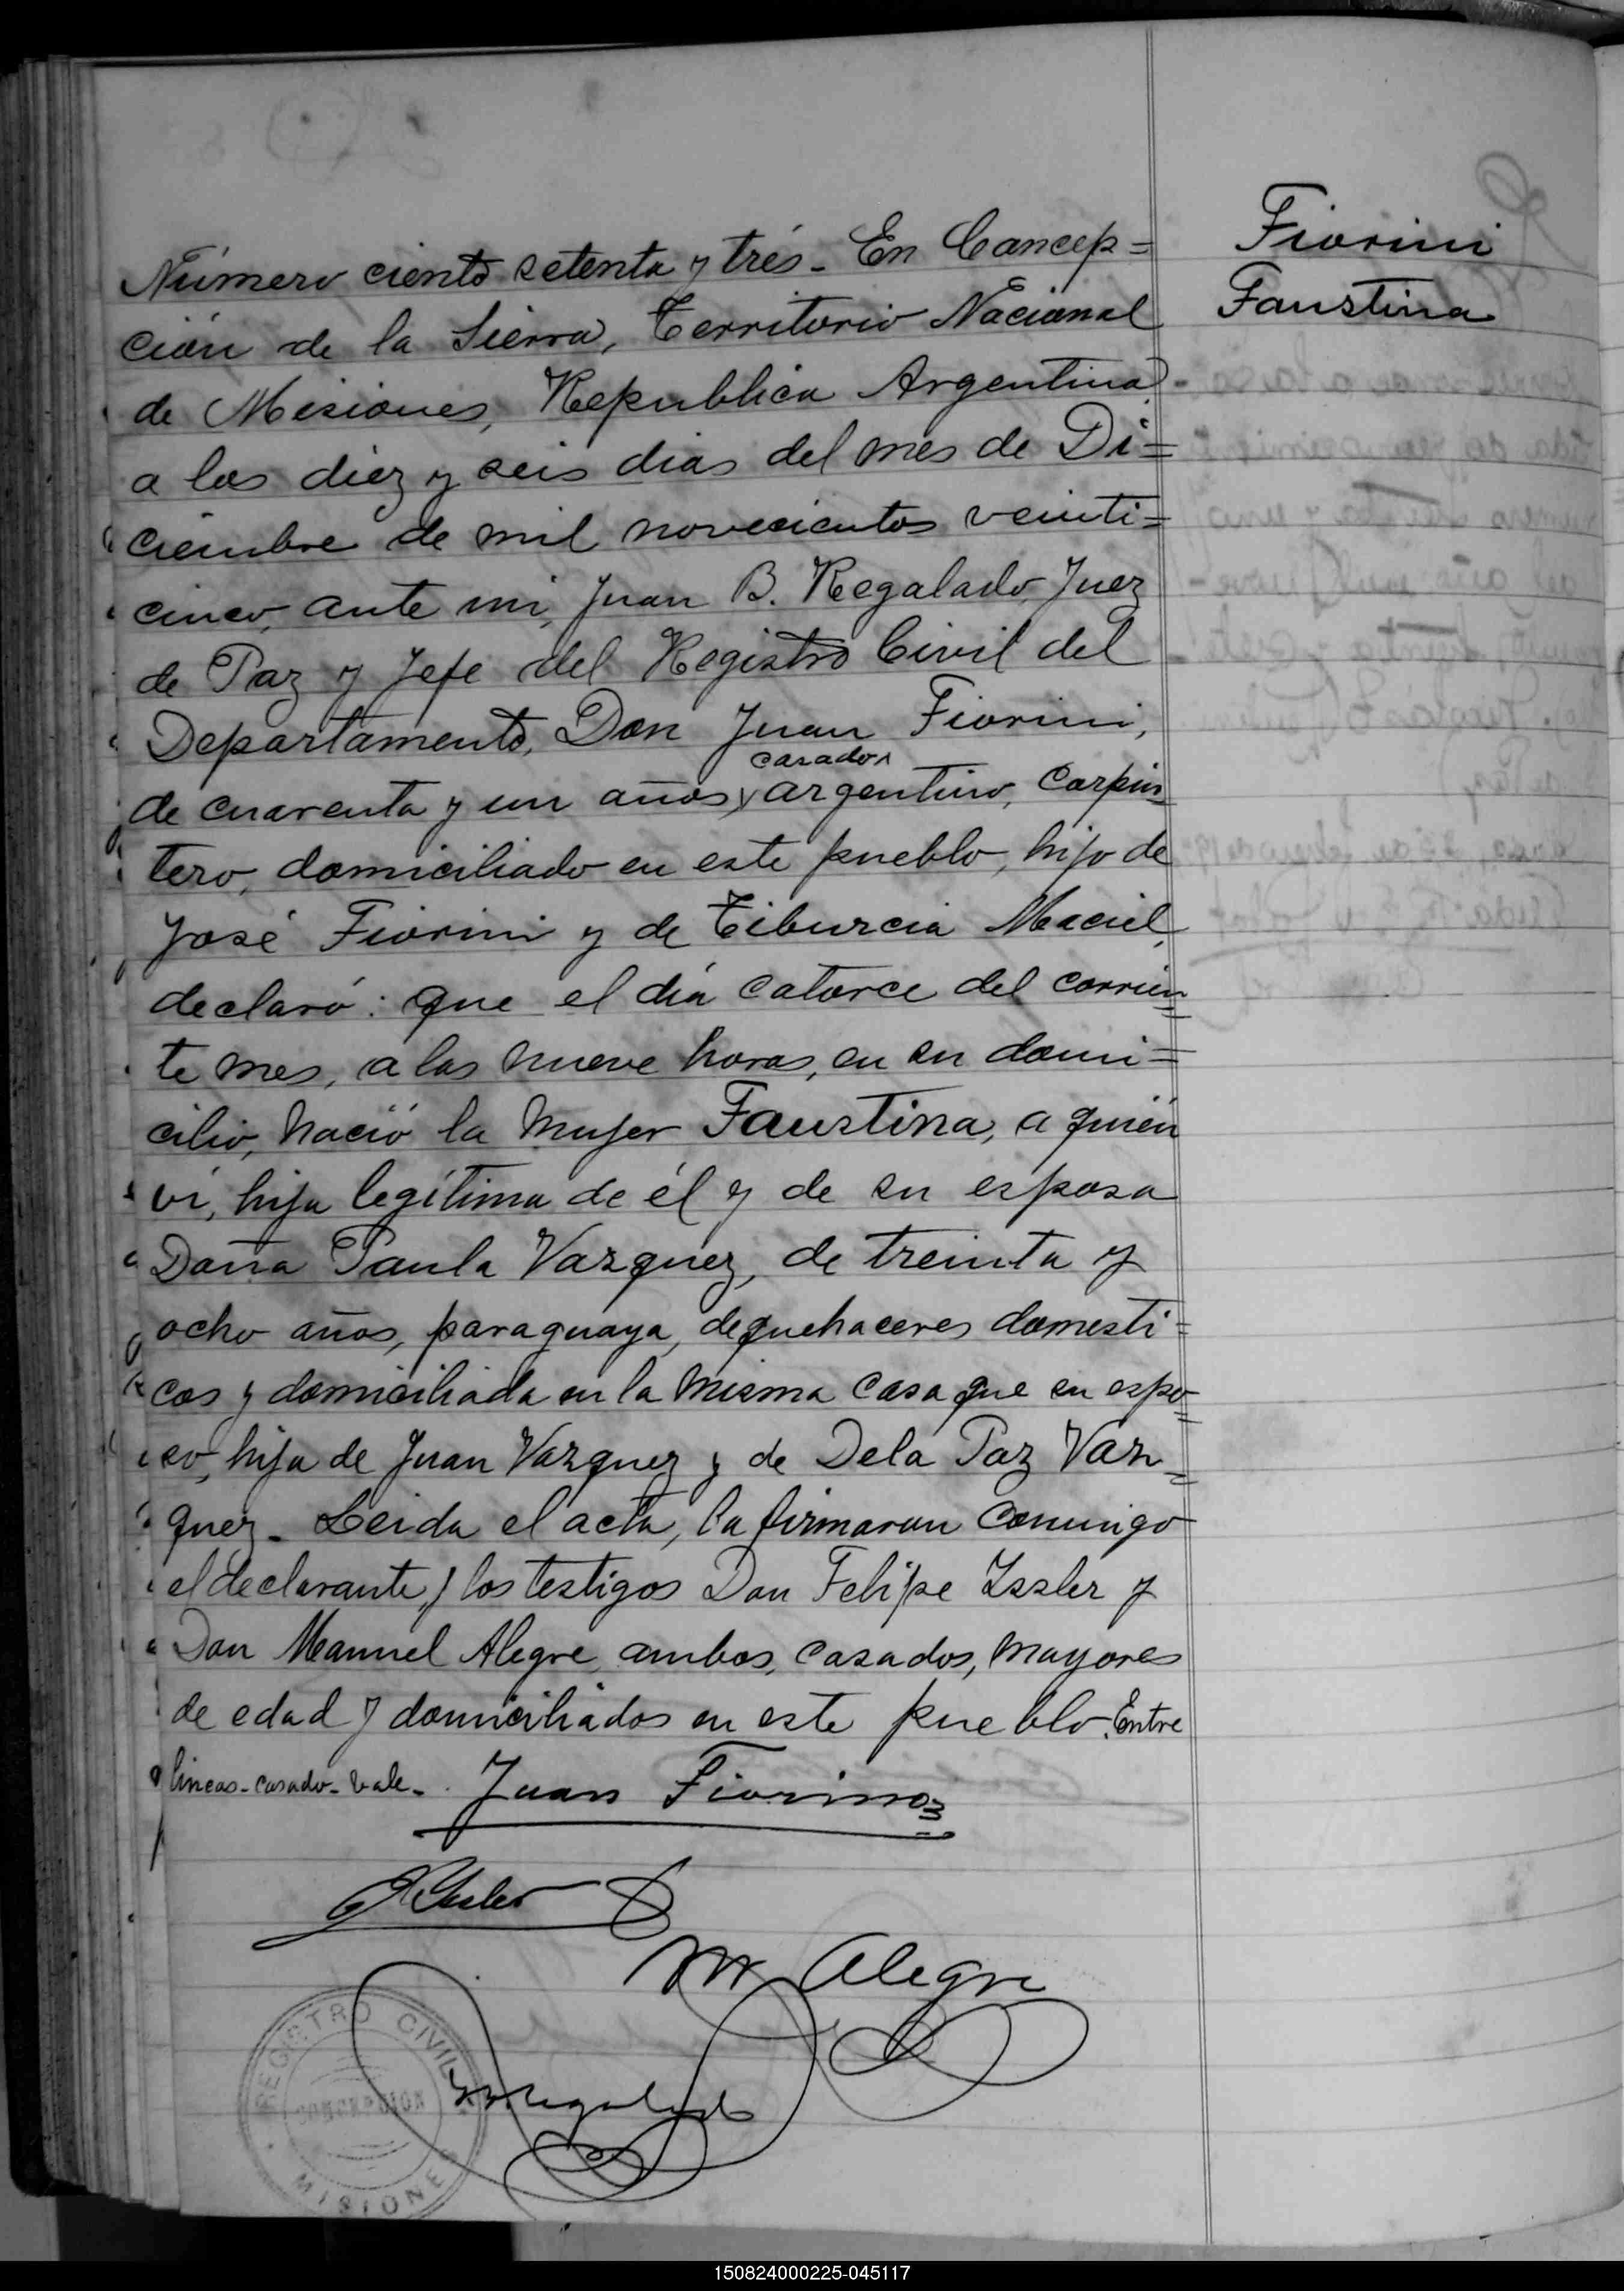 Fiorini
Faustina
Número ciento setenta y trés - En Concep=
ción de la Sierra, Territorio Nacional
de Misiones, Republica Argentina
a los diez y seis dias del mes de Di=
ciembre de mil novecientos veinti=
cinco, ante mi, Juan B. Regalado, Juez
de Paz y Jefe del Registro Civil del
Departamento, Don Juan Fiorini,
casado
de cuarenta y un años, argentino, Carpin=
tero, domiciliado en este pueblo, hijo de
José Fiorini y de Tiburcia Maciel,
declaró: que el día catorce del corrien=
te mes, a las nueve horas, en su domi=
cilio, nació la mujer Faustina, a quién
ví, hija legítima de él y de su esposa
Doña Paula Vazquez, de treinta y
ocho años, paraguaya, de quehaceres domesti=
cos y domiciliada en la misma casa que su espo=
so, hija de Juan Vazquez y de Dela Paz Vaz=
quez - Leida el acta, la firmaron conmigo
el declarante, y los testigos Don Felipe Issler y
Don Manuel Alegre, ambos, casados, mayores
de edad y domiciliados en este pueblo. Entre
lineas - casado - vale -
Juan Fiorino
M Alegre
REGISTRO CIVIL
CONCEPCION
MISIONES
150824000225-045117